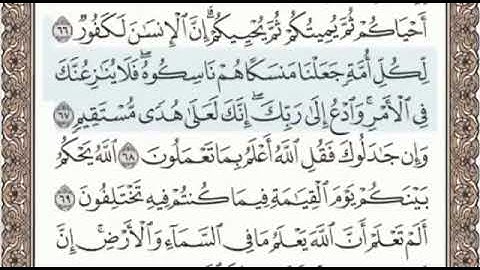 أَحْيَاكُمْ ثُمَّ يُمِيتُكُمْ ثُمَّ يُحْيِيكُمْ ۗ إِنَّ ٱلْإِنسَٰنَ لَكَفُورٌ ٦٦
لِّكُلِّ أُمَّةٍ جَعَلْنَا مَنسَكًا هُمْ نَاسِكُوهُ ۖ فَلَا يُنَٰزِعُنَّكَ
فِي ٱلْأَمْرِ ۚ وَٱدْعُ إِلَىٰ رَبِّكَ ۖ إِنَّكَ لَعَلَىٰ هُدًى مُّسْتَقِيمٍ ٦٧
وَإِن جَٰدَلُوكَ فَقُلِ ٱللَّهُ أَعْلَمُ بِمَا تَعْمَلُونَ ٦٨ ٱللَّهُ يَحْكُمُ
بَيْنَكُمْ يَوْمَ ٱلْقِيَٰمَةِ فِيمَا كُنتُمْ فِيهِ تَخْتَلِفُونَ ٦٩
أَلَمْ تَعْلَمْ أَنَّ ٱللَّهَ يَعْلَمُ مَا فِي ٱلسَّمَآءِ وَٱلْأَرْضِ ۗ إِنَّ